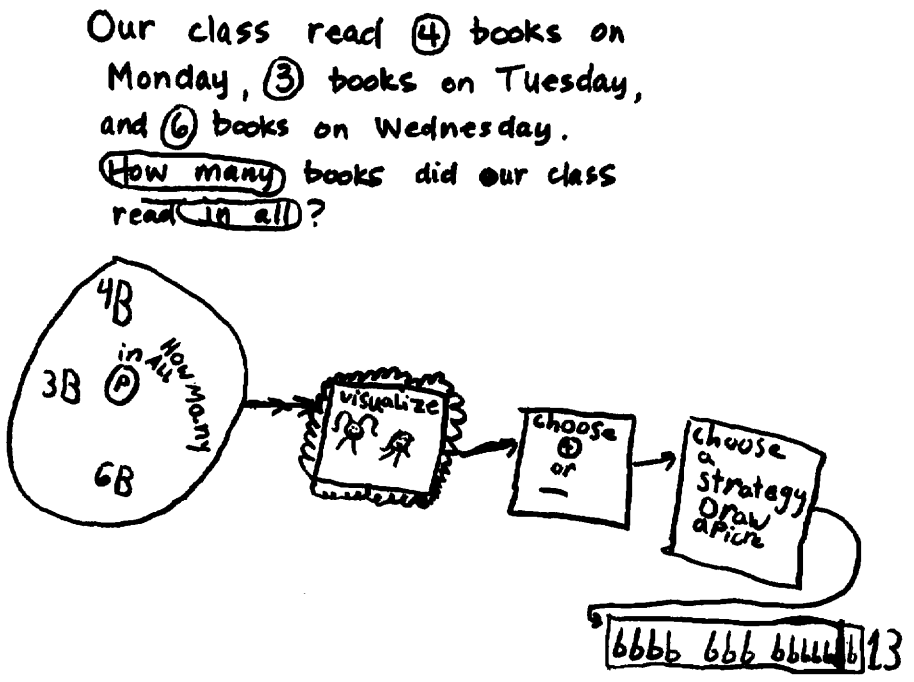 Our class read 4 books on
Monday, 3 books on Tuesday,
and 6 books on Wednesday.
How many books did our class
read in all?
4B
in ALL
How Many
3B P
6B
visualize
choose
+
or
-
choose
a
strategy
Draw
a Picre
bbbb bbb bbbbb b 13